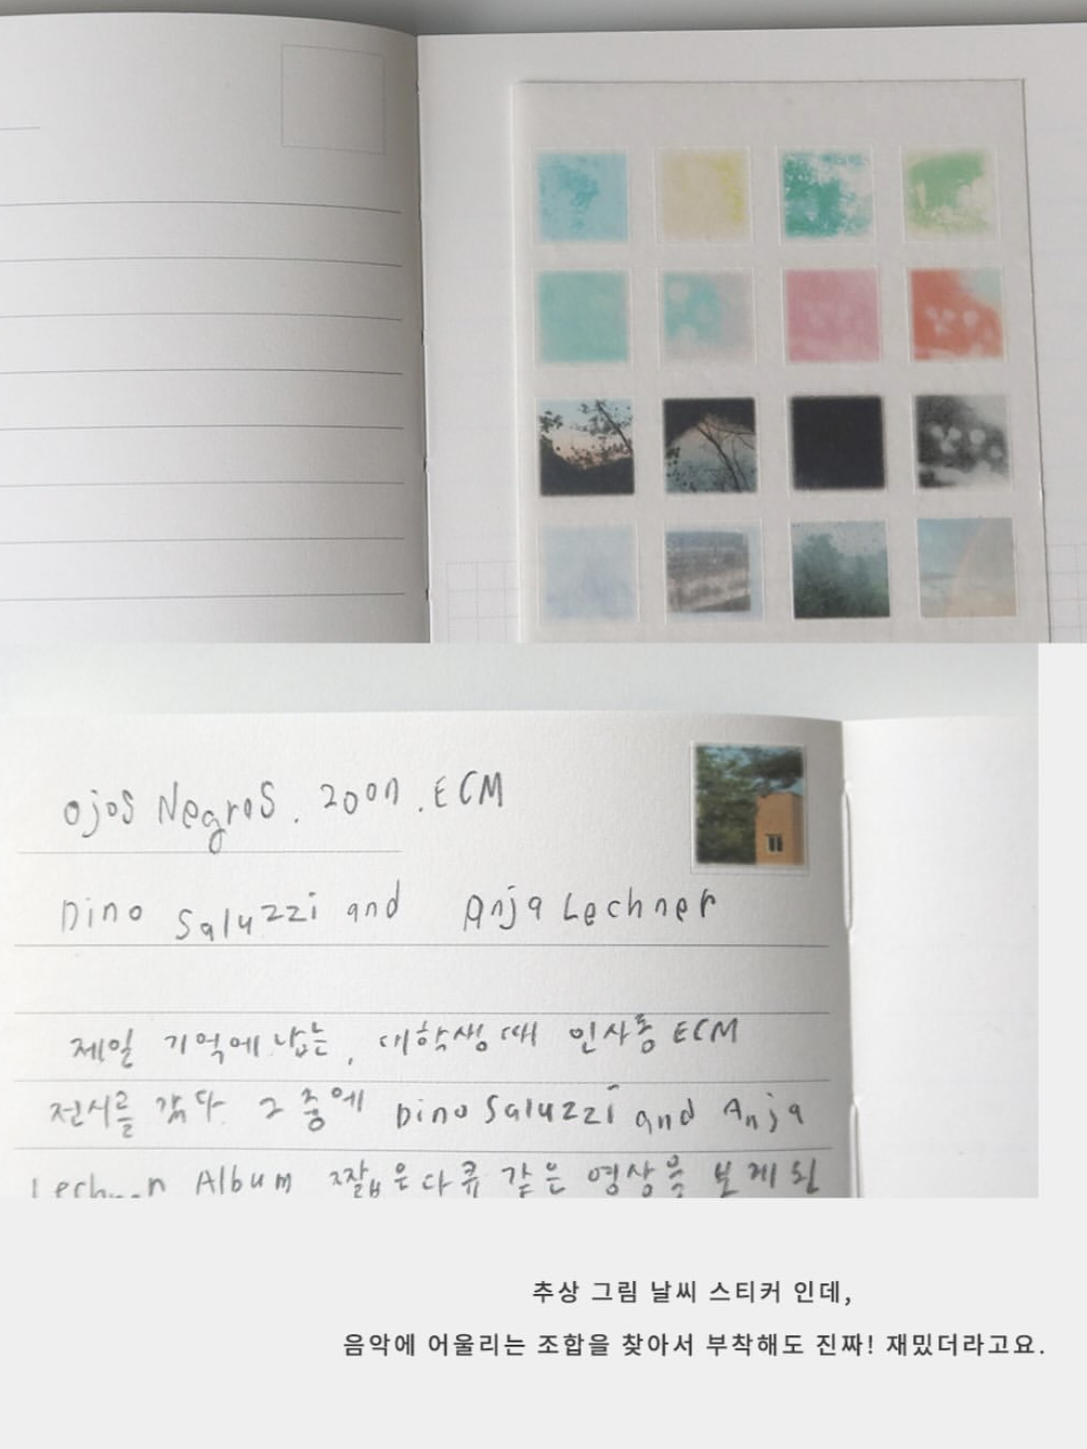 Ojos Negros. 2007. ECM
Dino Saluzzi and Anja Lechner
제일 기억에 남는, 대학생 때 인사동 ECM
전시를 갔다. 그 중에 Dino Saluzzi and Anja
Album 짧은 다큐 같은 영상을 보게 된
추상 그림 날씨 스티커 인데,
음악에 어울리는 조합을 찾아서 부착해도 진짜! 재밌더라고요.